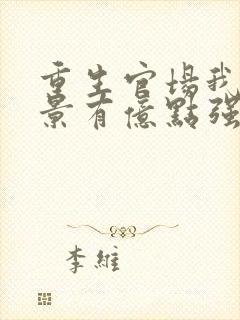 重生官場我
景有億點强
李維